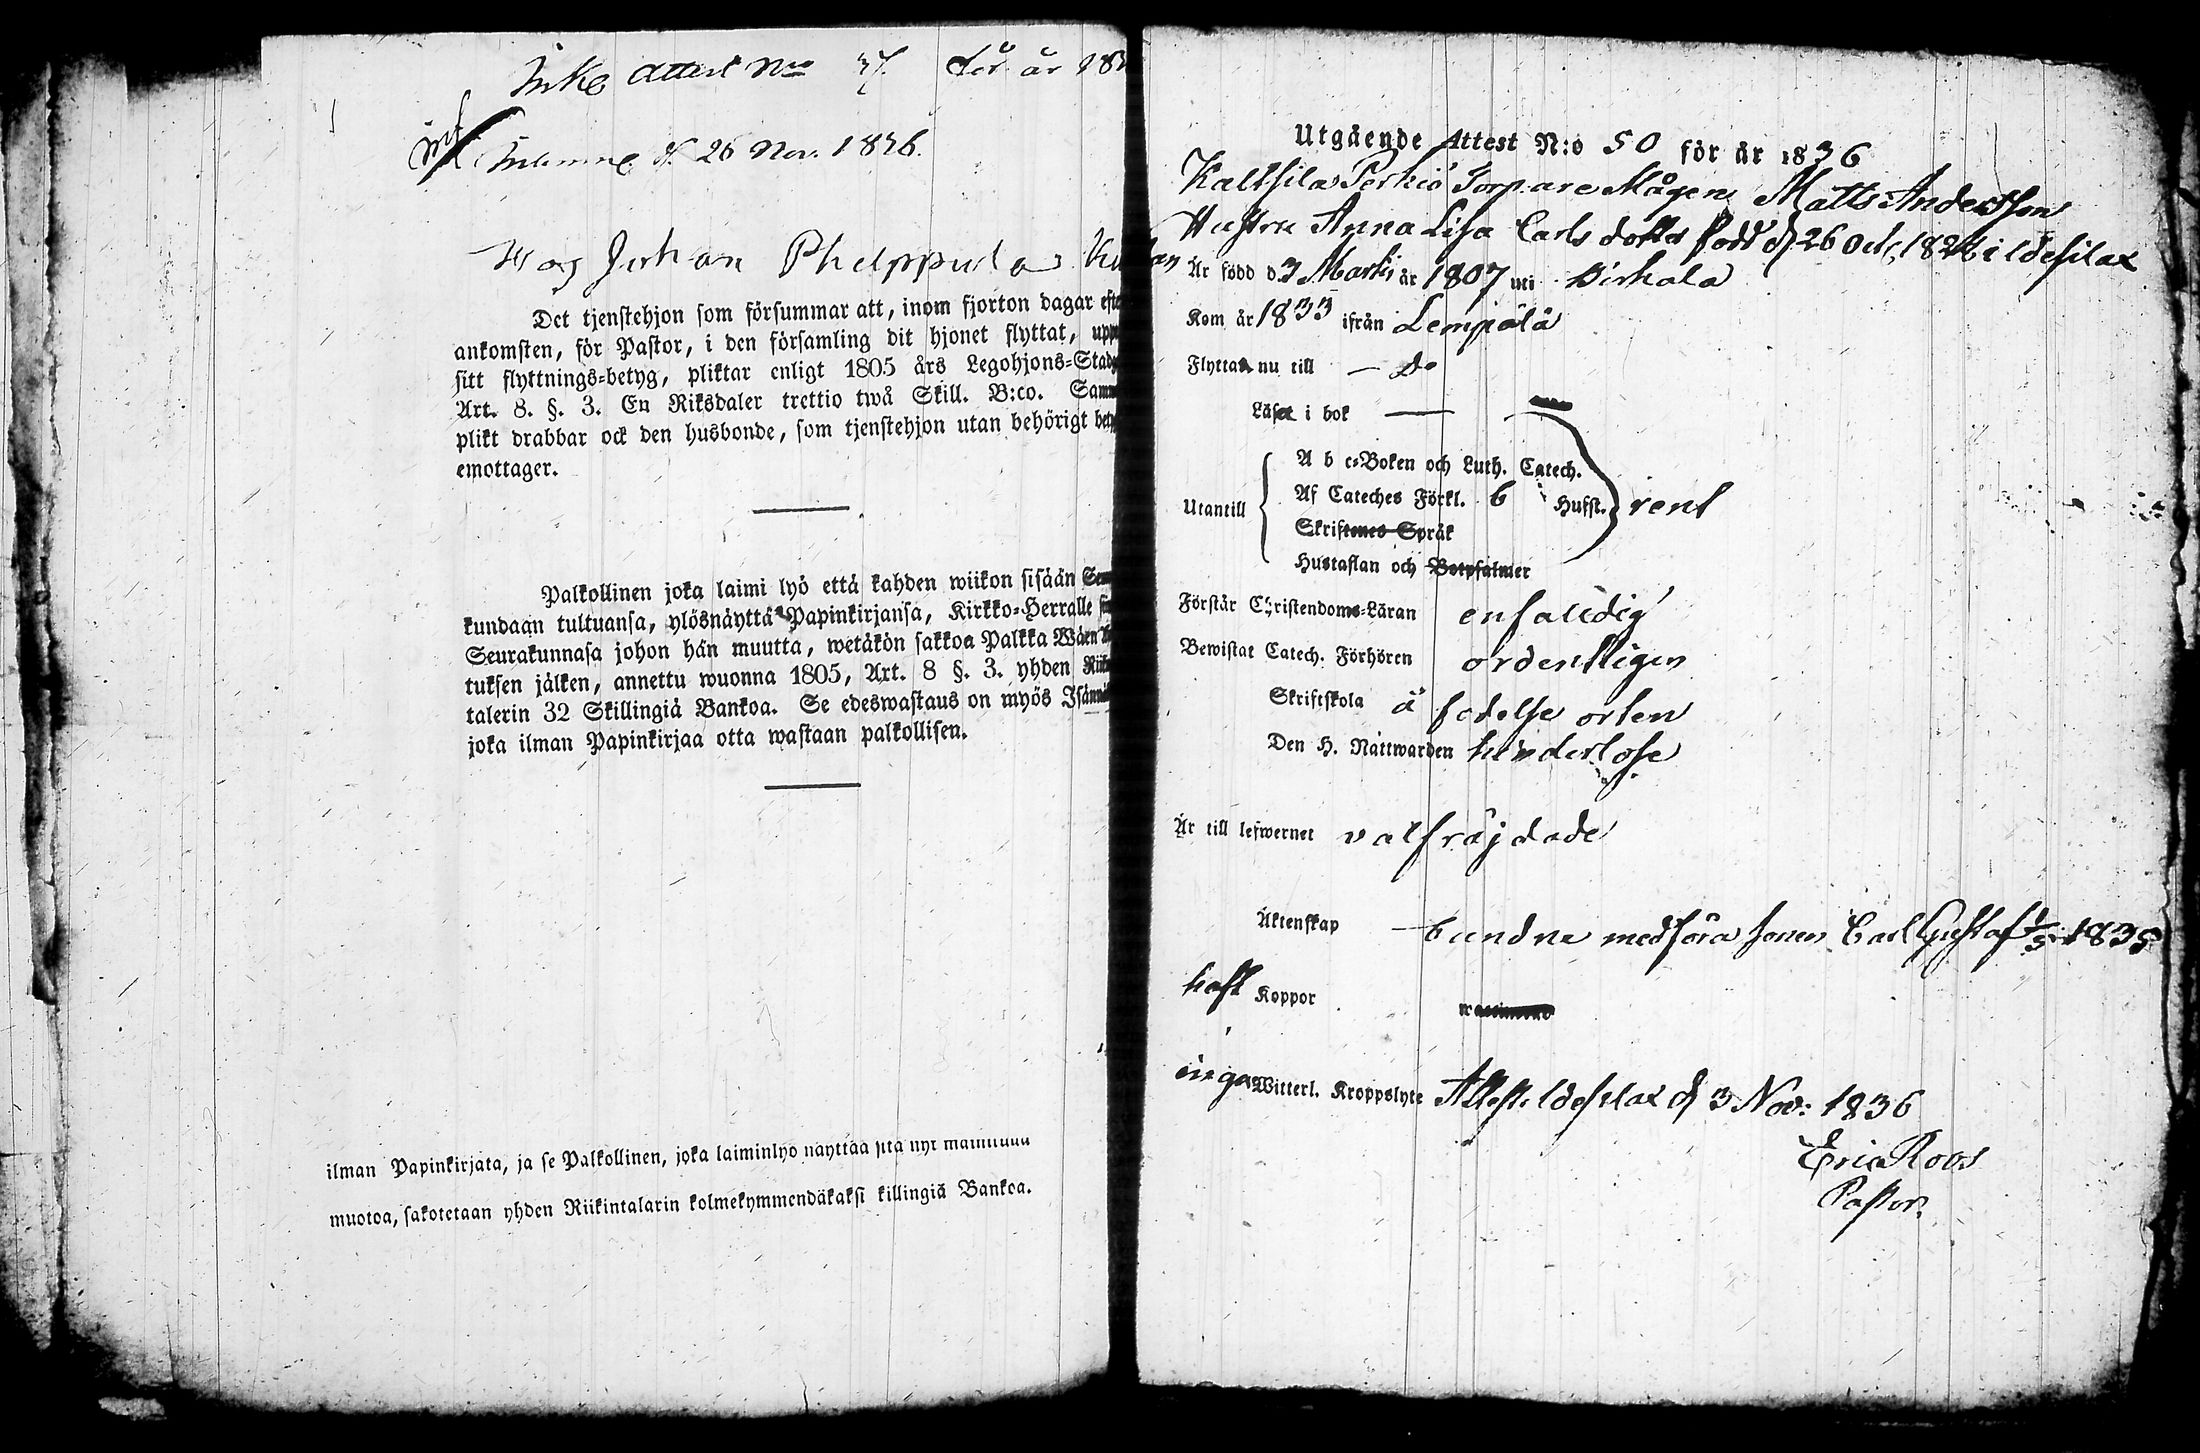 Ink. Attest No 37. för år 183
d. 26 Nov. 1836.
Johan
Det tjenstehjon som försummar att, inom fjorton dagar efte
ankomsten, för Pastor, i den församling dit hjonet flyttat, upp
sitt flyttnings-betyg, pliktar enligt 1805 års Legohjons-Stad
Art. 8. §. 3. En Riksdaler trettio twå Skill. B:co. Samm
plikt drabbar ock den husbonde, som tjenstehjon utan behörigt bety
emottager.
Palkollinen joka laimi lyö että kahden wiikon sisään Seu
kundaan tultuansa, ylösnäyttä Papinkirjansa, Kirkko-Herralle si
Seurakunnasa johon hän muutta, wetäkön sakkoa Palkka Wäen
tuksen jälken, annettu wuonna 1805, Art. 8 §. 3. yhden Riik
talerin 32 Skillingiä Bankoa. Se edeswastaus on myös Isännä
joka ilman Papinkirjaa otta wastaan palkollisen.
ilman Papinkirjata, ja se Palkollinen, joka laiminlyö näyttää sitä nyt mainittua
muotoa, sakotetaan yhden Riikintalarin kolmekymmendäkaksi killingiä Bankoa.
Utgående Attest N:o 50 för år 1836
Kaltsila Perkiö Torpare Mågen Matts Andersson
Hustru Anna Lisa Carls dotter född d 26 Oct. i Idesilax
Är född d 3 Martii år 1807 uti Birkala
Kom år 1833 ifrån Lempälä
Flyttar nu till — do
Läser i bok —
A b c-Boken och Luth. Catech.
Utantill Af Cateches Förkl. 6 Hufst. rent
Skriftenes Språk
Hustaflan och Botpsalmer
Förstår Christendoms-Läran enfaldig
Bewistat Catech. Förhören ordentligen
Skriftskola å födelse orten
Den H. Nattwarden hinderlöse
Är till lefwernet välfräjdade
Äktenskap — bundne medföra sonen Carl Gustaf 1/5 1835
haft Koppor
inga Witterl. Kroppslyte Attest. Idesilax d 3 Nov: 1836
Eric Roos
Pastor.